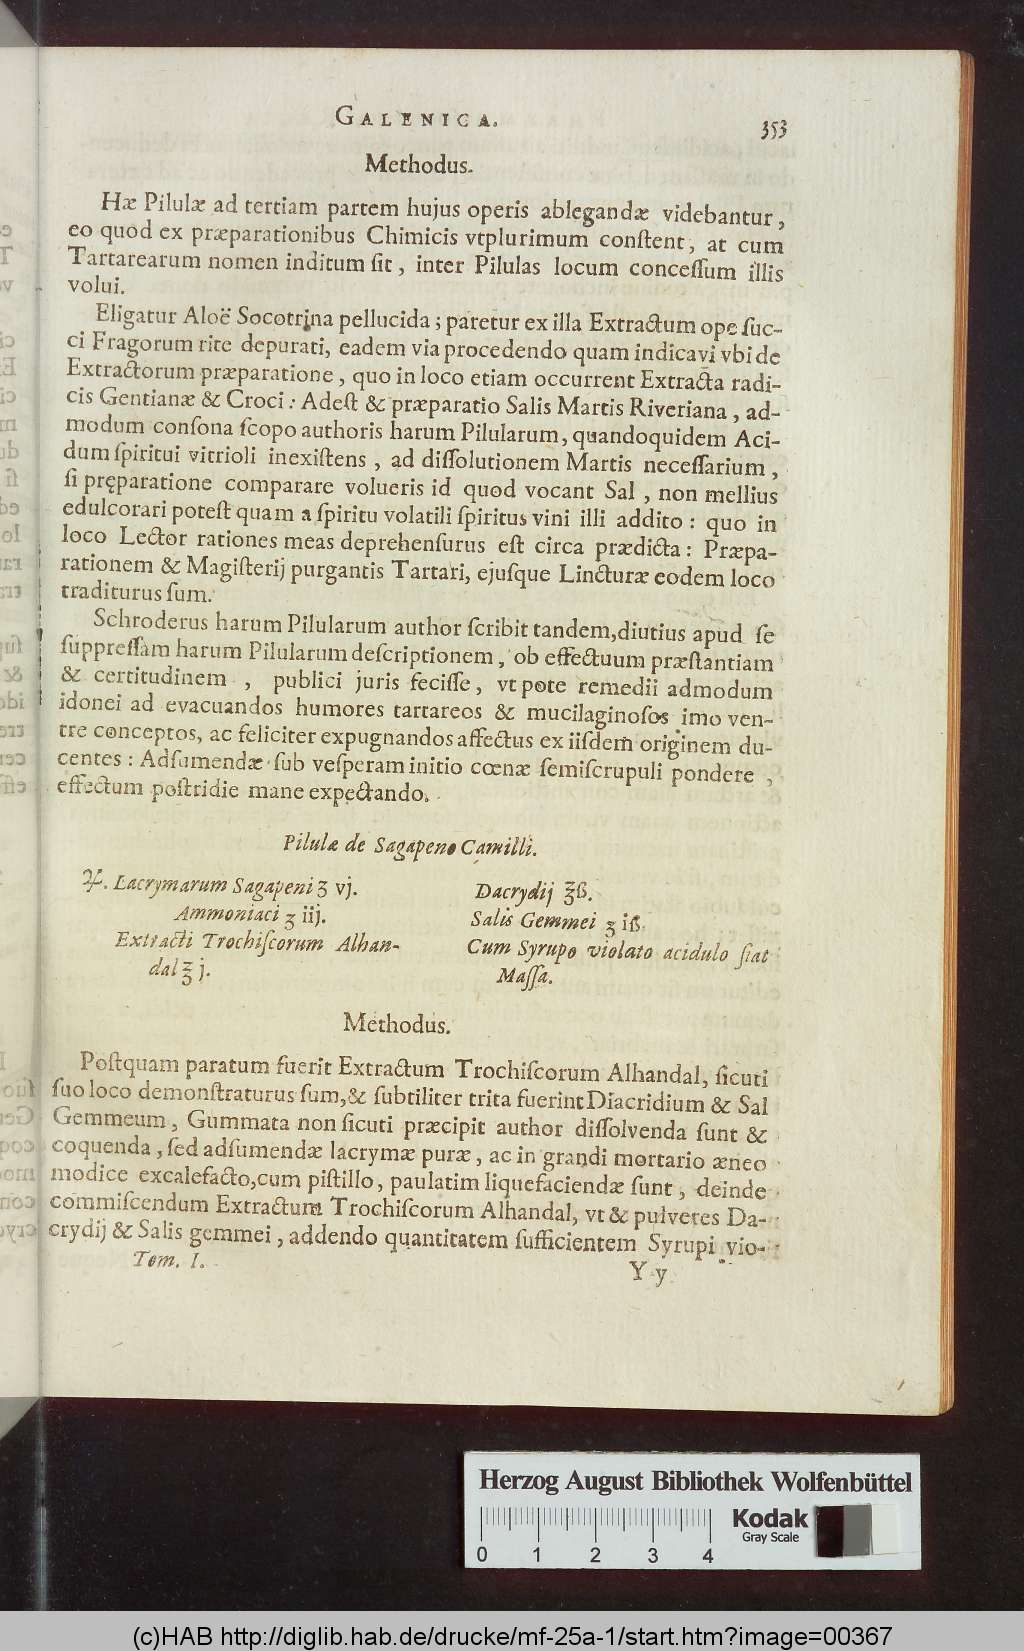 GALENICA.
353
Methodus.
Hæ Pilulæ ad tertiam partem hujus operis ablegandæ videbantur,
eo quod ex præparationibus Chimicis vtplurimum conſtent, at cum
Tartarearum nomen inditum ſit, inter Pilulas locum conceſſum illis
volui.
Eligatur Aloë Socotrina pellucida; paretur ex illa Extractum ope ſuc-
ci Fragorum rite depurati, eadem via procedendo quam indicavi vbi de
Extractorum præparatione, quo in loco etiam occurrent Extracta radi-
cis Gentianæ & Croci: Adeſt & præparatio Salis Martis Riveriana, ad-
modum conſona ſcopo authoris harum Pilularum, quandoquidem Aci-
dum ſpiritui vitrioli inexiſtens, ad diſſolutionem Martis neceſſarium,
ſi pręparatione comparare volueris id quod vocant Sal, non mellius
edulcorari poteſt quam a ſpiritu volatili ſpiritus vini illi addito: quo in
loco Lector rationes meas deprehenſurus eſt circa prædicta: Præpa-
rationem & Magiſterij purgantis Tartari, ejuſque Lincturæ eodem loco
traditurus ſum.
Schroderus harum Pilularum author ſcribit tandem, diutius apud ſe
ſuppreſſam harum Pilularum deſcriptionem, ob effectuum præſtantiam
& certitudinem, publici juris feciſſe, vt pote remedii admodum
idonei ad evacuandos humores tartareos & mucilaginoſos imo ven-
tre conceptos, ac feliciter expugnandos affectus ex iiſdem originem du-
centes: Adſumendæ ſub veſperam initio cœnæ ſemiſcrupuli pondere,
effectum poſtridie mane expectando.
Pilulæ de Sagapeno Camilli.
♃. Lacrymarum Sagapeni ʒ vj.
Ammoniaci ʒ iij.
Extracti Trochiſcorum Alhan-
dal ℥ j.
Dacrydij ℥ß.
Salis Gemmei ʒ iß.
Cum Syrupo violato acidulo fiat
Maſſa.
Methodus.
Poſtquam paratum fuerit Extractum Trochiſcorum Alhandal, ſicuti
ſuo loco demonſtraturus ſum, & ſubtiliter trita fuerint Diacridium & Sal
Gemmeum, Gummata non ſicuti præcipit author diſſolvenda ſunt &
coquenda, ſed adſumendæ lacrymæ puræ, ac in grandi mortario æneo
modice excalefacto, cum piſtillo, paulatim liquefaciendæ ſunt, deinde
commiſcendum Extractum Trochiſcorum Alhandal, vt & pulveres Da-
crydij & Salis gemmei, addendo quantitatem ſufficientem Syrupi vio-
Tom. I.
Y y
Herzog August Bibliothek Wolfenbüttel
Kodak
Gray Scale
0 1 2 3 4
(c)HAB http://diglib.hab.de/drucke/mf-25a-1/start.htm?image=00367